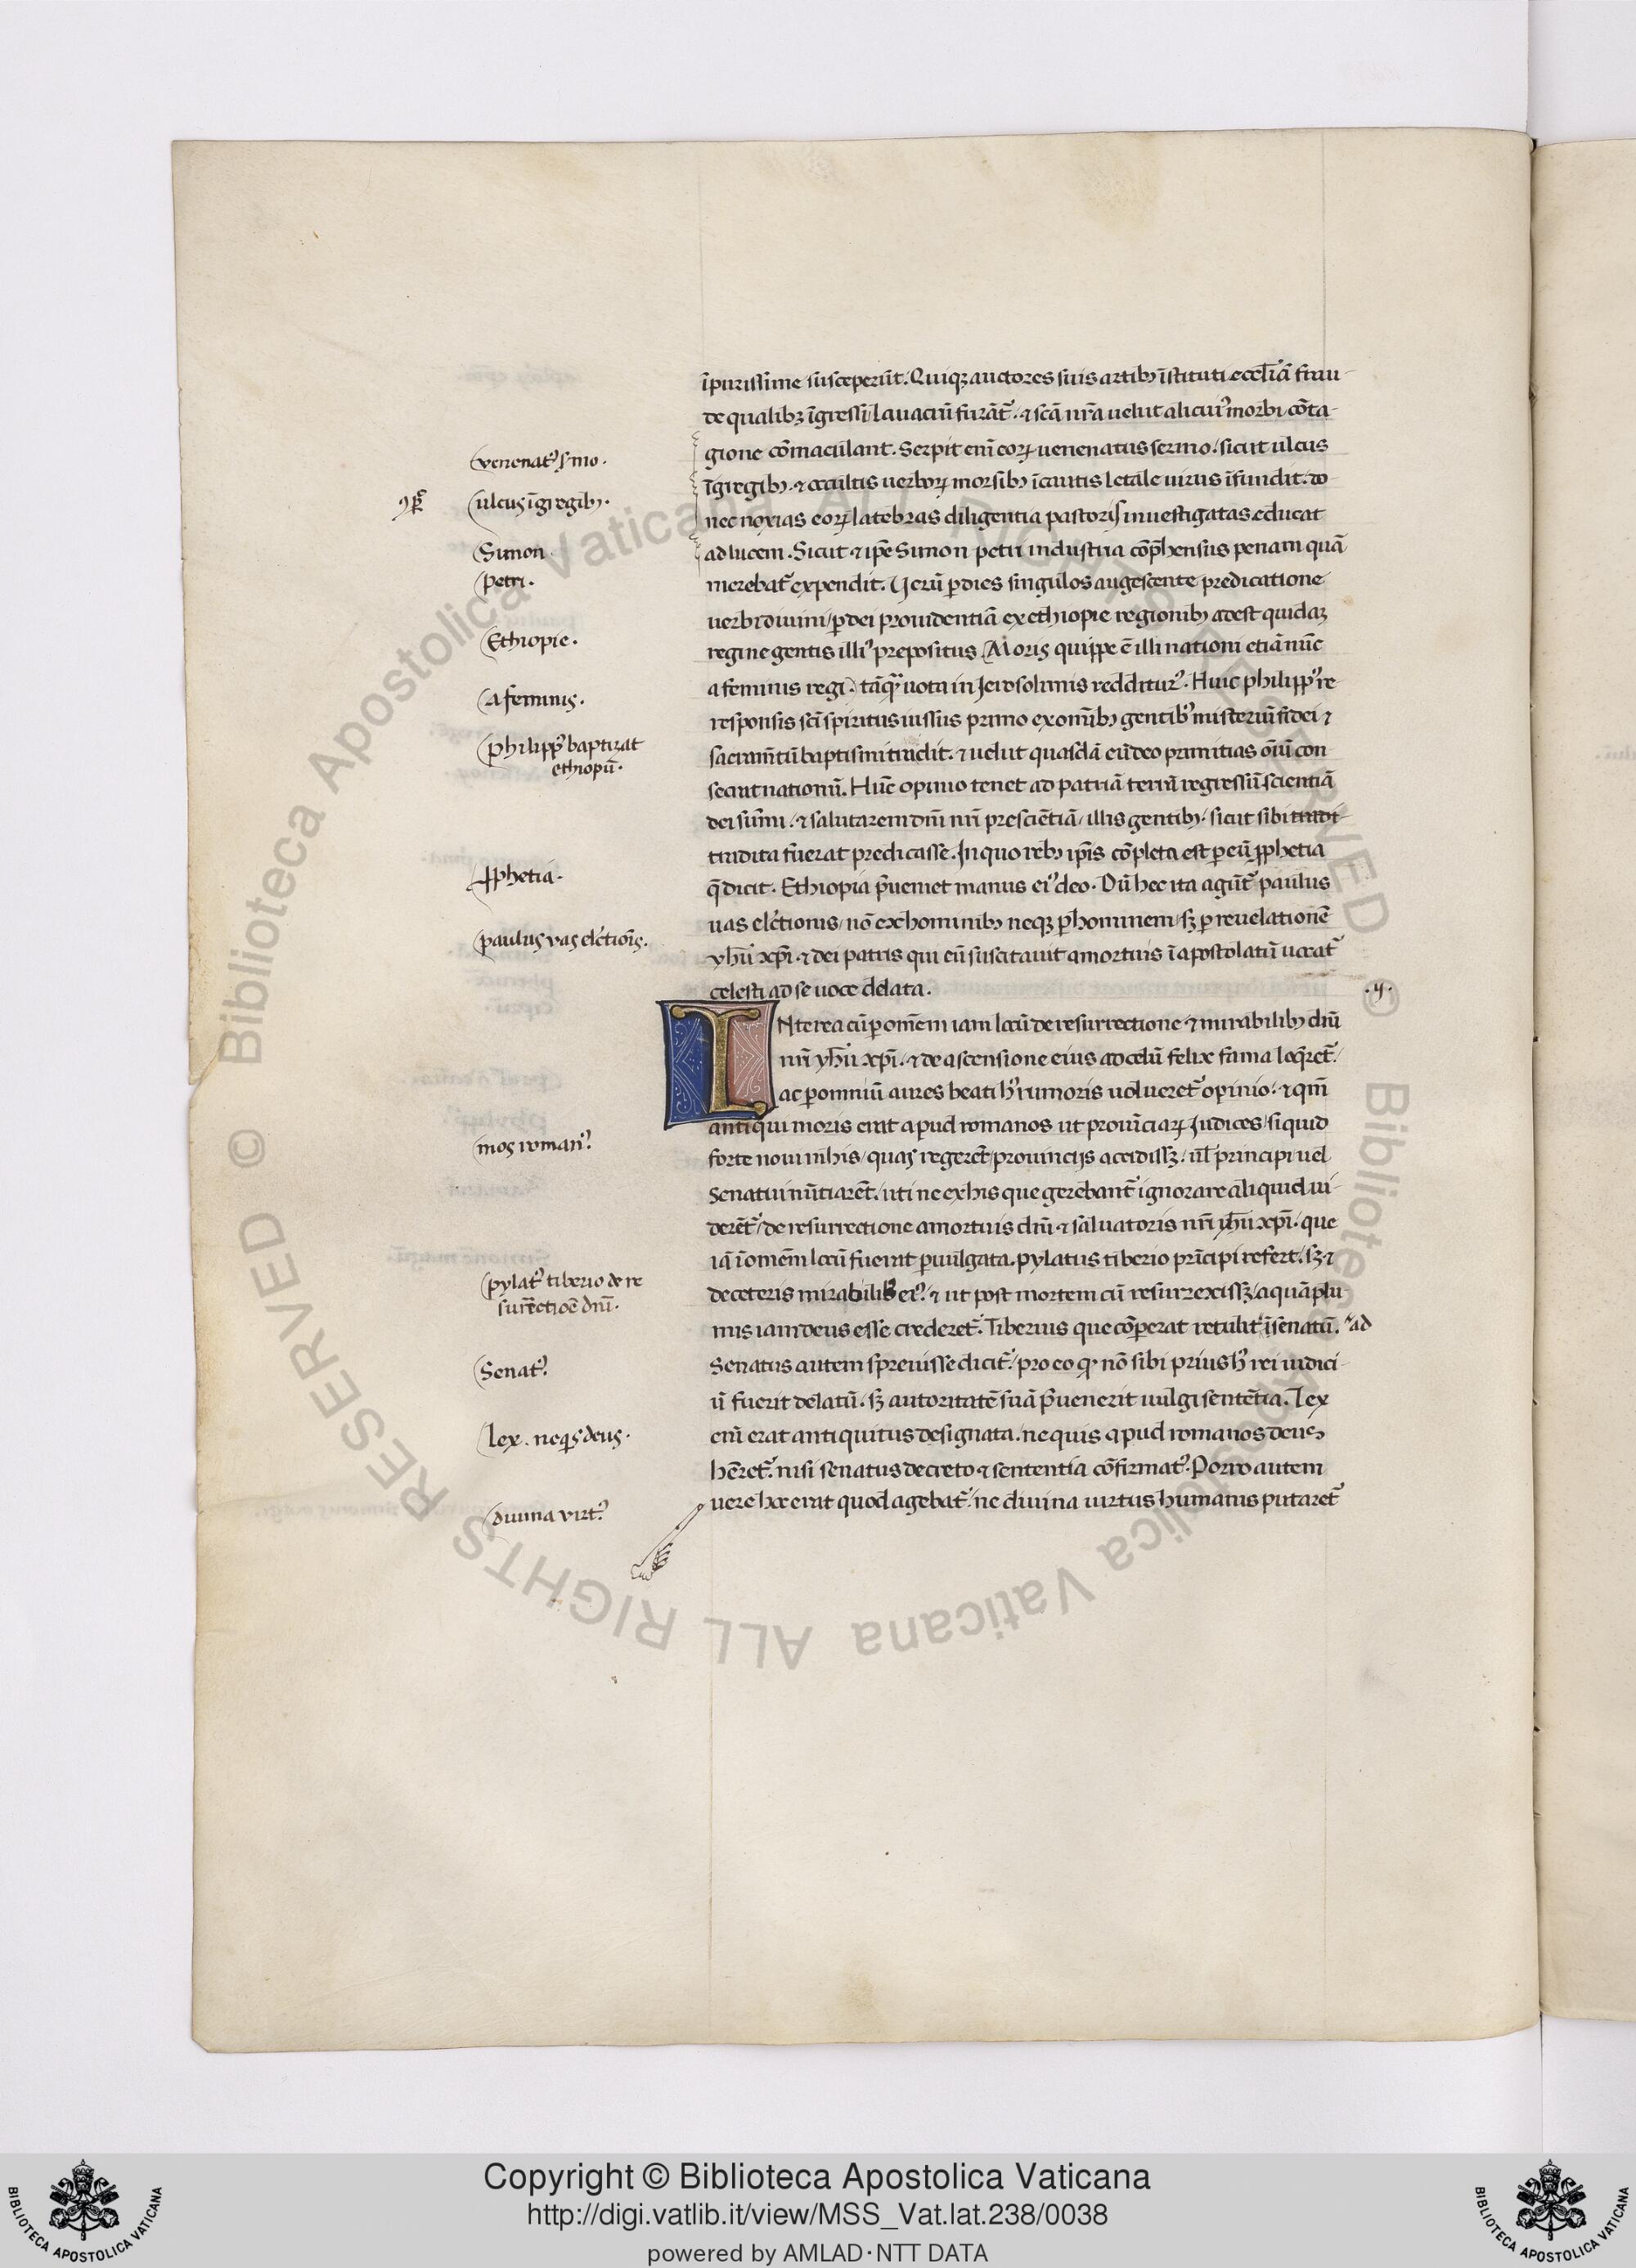 īpurissime susceperūt. Quiqꝫ auctores suis artibꝰ īstituti eccl̄iā frau-
de qualibꝫ īgressi lauacrū furāt᷑. ⁊ scā nr̄a uelut alicuiꝰ morbi cōta-
gione cōmaculant. Serpit eni᷑ eoꝝ uenenatus sermo. sicut ulcus
īgregibꝰ. ⁊ occultis uerboꝝ morsibꝰ īcautis letale uirus īfundit. do-
nec noxias eoꝝ latebras diligentia pastoris inuestigatas educat
ad lucem. Sicut ⁊ ip̄e Simon petri industria cōp̄hensus penam quā
merebat᷑ expendit. Verū ꝑ dies singulos augescente predicatione
uerbi diuini / ꝑ dei prouidentiā ex ethiopie regionibꝰ adest quidaꝫ
regine gentis illiꝰ prepositus (Moris quippe ē illi nationi etiā nūc
a feminis regi.) tāqꝫ uota in Jerosolimis redditurꝰ. Huic philippꝰ re
responsis sc̄i spiritus iussus primo ex omībꝰ gentibꝰ misteriū fidei ⁊
sacram̄tū baptismi tradit. ⁊ uelut quasdā eū deo primitias oīū con-
secrat nationū. Hūc opinio tenet ad patriā terrā regressū scientiā
dei sūmi. ⁊ salutarem dn̄i nr̄i presciētiā / illis gentibꝰ. sicut sibi tradi-
tradita fuerat predicasse. In quo rebꝰ ip̄is cōpleta est ꝑ eū ꝓphetia
q̄ dicit. Ethiopia p̄ueniet manus eiꝰ deo. Dū hec ita agūt᷑ paulus
uas elctionis / nō ex hominibꝰ neqꝫ ꝑ hominem / sꝫ ꝑ reuelationē
yhū xp̄i. ⁊ dei patris qui eū suscitauit a mortuis ī apostolatū uocat᷑
celesti ad se uoce delata.
.ij.
INterea cū ꝑ omēm iam locū de resurrectione ⁊ mirabilibꝰ dn̄i
nr̄i yhū xp̄i. ⁊ de ascensione eius ad celū felix fama loq̄ret᷑.
ac ꝑ omniū aures beati hꝰ rumoris uolueret᷑ opinio. ⁊ qm̄
antiqui moris erat apud romanos ut prouīciaꝝ Judices / si quid
forte noui in his / quas regerēt prouincijs accidissꝫ. ul̄ principi uel
Senatui nūtiarēt. uti ne ex his que gerebant᷑ ignorare aliquid ui-
derēt᷑ / de resurrectione a mortuis dn̄i ⁊ saluatoris nr̄i yhū xp̄i. que
iā ī omēm locū fuerat ꝑuulgata. pylatus tiberio prīcipi refert. sꝫ ⁊
de ceteris mirabilibꝰ eiꝰ. ⁊ ut post mortem cū resurrexissꝫ / a quāplu
mis iam deus esse crederet᷑. Tiberius que cōperat retulit ī senatū. ad
Senatus autem spreuisse dicit᷑. / pro eo qꝫ nō sibi prius hꝰ rei iudici-
ū fuerit delatū. sꝫ autoritatē suā p̄uenerit uulgi sentētia. Lex
eni᷑ erat antiquitus designata. ne quis apud romanos deus
hēret᷑. nisi senatus decreto ⁊ sententia cōfirmatꝰ. Porro autem
uere hoc erat quod agebat᷑. ne diuina uirtus humanis putaret᷑
(venenatꝰ s̄mo.
(ulcus īgregibꝰ.
(Simon.
(petri.
(Ethiopie.
(a feminis.
(philippꝰ baptizat
ethiopū.
ꝓphetia.
(paulus vas elctiōis.
(mos romanꝰ.
(pylatꝰ tiberio de re
surrectiōe dn̄i.
(Senatꝰ.
(lex. ne qͥs deus.
(diuina virtꝰ.
© Biblioteca Apostolica Vaticana ALL RIGHTS RESERVED © Biblioteca Apostolica Vaticana ALL RIGHTS RESERVED
Copyright © Biblioteca Apostolica Vaticana
http://digi.vatlib.it/view/MSS_Vat.lat.238/0038
powered by AMLAD·NTT DATA
BIBLIOTECA APOSTOLICA VATICANA
BIBLIOTECA APOSTOLICA VATICANA